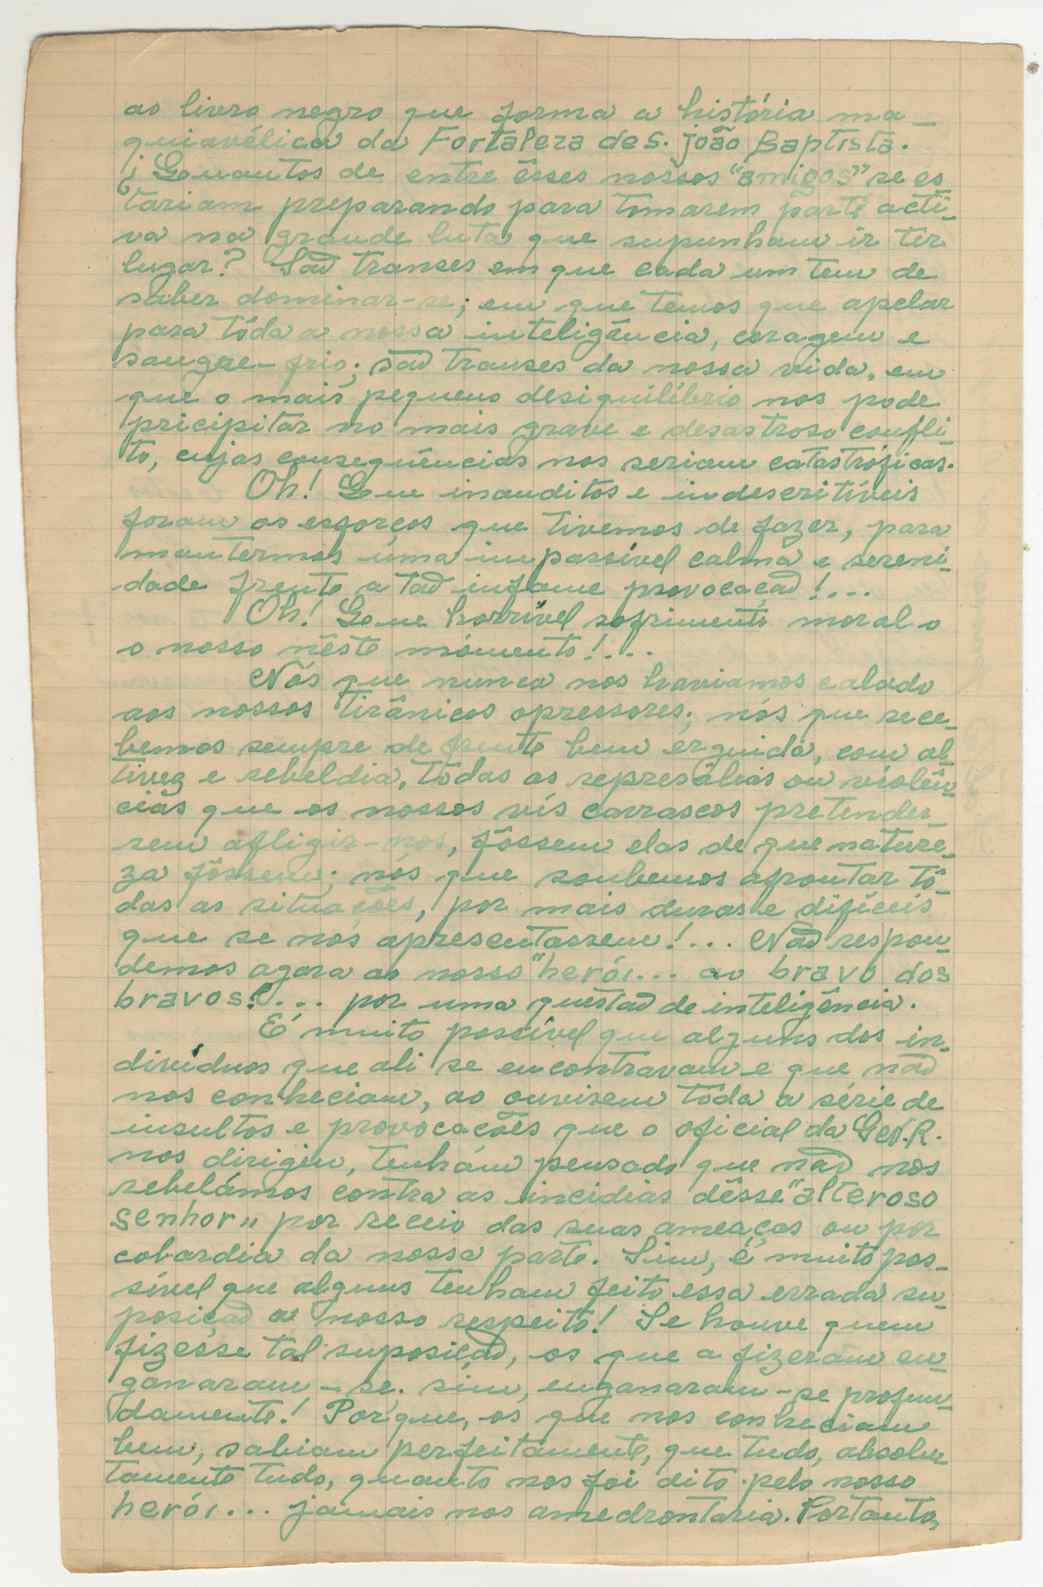 ao livro negro que forma a história ma_
quiavélica da Fortaleza de S. João Baptista.
¿ Quantos de entre êsses nossos "amigos" se es_
tariam preparando para tomarem parte acti_
va na grande luta que supunham ir ter
lugar? São transes em que cada um tem de
saber dominar-se; em que temos que apelar
para tôda a nossa inteligência, coragem e
sangue-frio; são transes da nossa vida, em
que o mais pequeno desiquilíbrio nos pode
pricipitar no mais grave e desastroso confli_
to, cujas consequências nos seriam catastroficas.
Oh! Que inauditos e indescritíveis
foram os esforços que tivemos de fazer, para
mantermos uma impassível calma e sereni_
dade frente a tão infame provocação!...
Oh! Que horrível sofrimento moral o
o nosso nêste momento!...
Nós que nunca nos haviamos calado
aos nossos tirânicos opressores; nós que rece_
bemos sempre de frente bem erguida, com al_
tivez e rebeldia, tôdas as represálias ou violên_
cias que os nossos vís carrascos pretendes_
sem afligir-nos, fôssem elas de que nature_
za fôssem; nós que soubemos afrontar tô_
das as situações, por mais duras e difíceis
que se nos apresentassem!... Não respon_
demos agora ao nosso "herói... ao bravo dos
bravos!... por uma questão de inteligência.
É muito possível que alguns dos in_
divíduos que ali se encontravam e que não
nos conheciam, ao ouvirem tôda a série de
insultos e provocações que o oficial da G.N.R.
nos dirigiu, tenham pensado que não nos
rebelámos contra as incidias dêsse "alteroso
senhor" por receio das suas ameaças ou por
cobardia da nossa parte. Sim, é muito pos_
sível que alguns tenham feito essa errada su_
posição a nosso respeito! Se houve quem
fizesse tal suposição, os que a fizeram en_
ganaram-se. sim, enganaram-se profun_
damente! Porque, os que nos conheciam
bem, sabiam perfeitamente, que tudo, absolu_
tamente tudo, quanto nos foi dito pelo nosso
herói... jamais nos amedrontaria. Portanto,